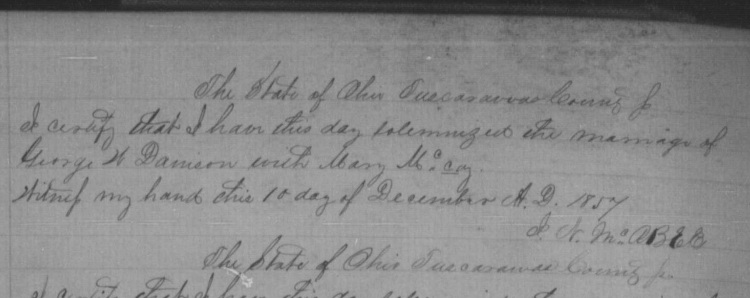 The State of Ohio Tuscarawas County ss
I certify that I have this day solemnized the marriage of
George W Davison with Mary McCoy.
Witness my hand this 10 day of December A.D. 1857
J. N. McABEE
The State of Ohio Tuscarawas County ss
I certify that I have this day